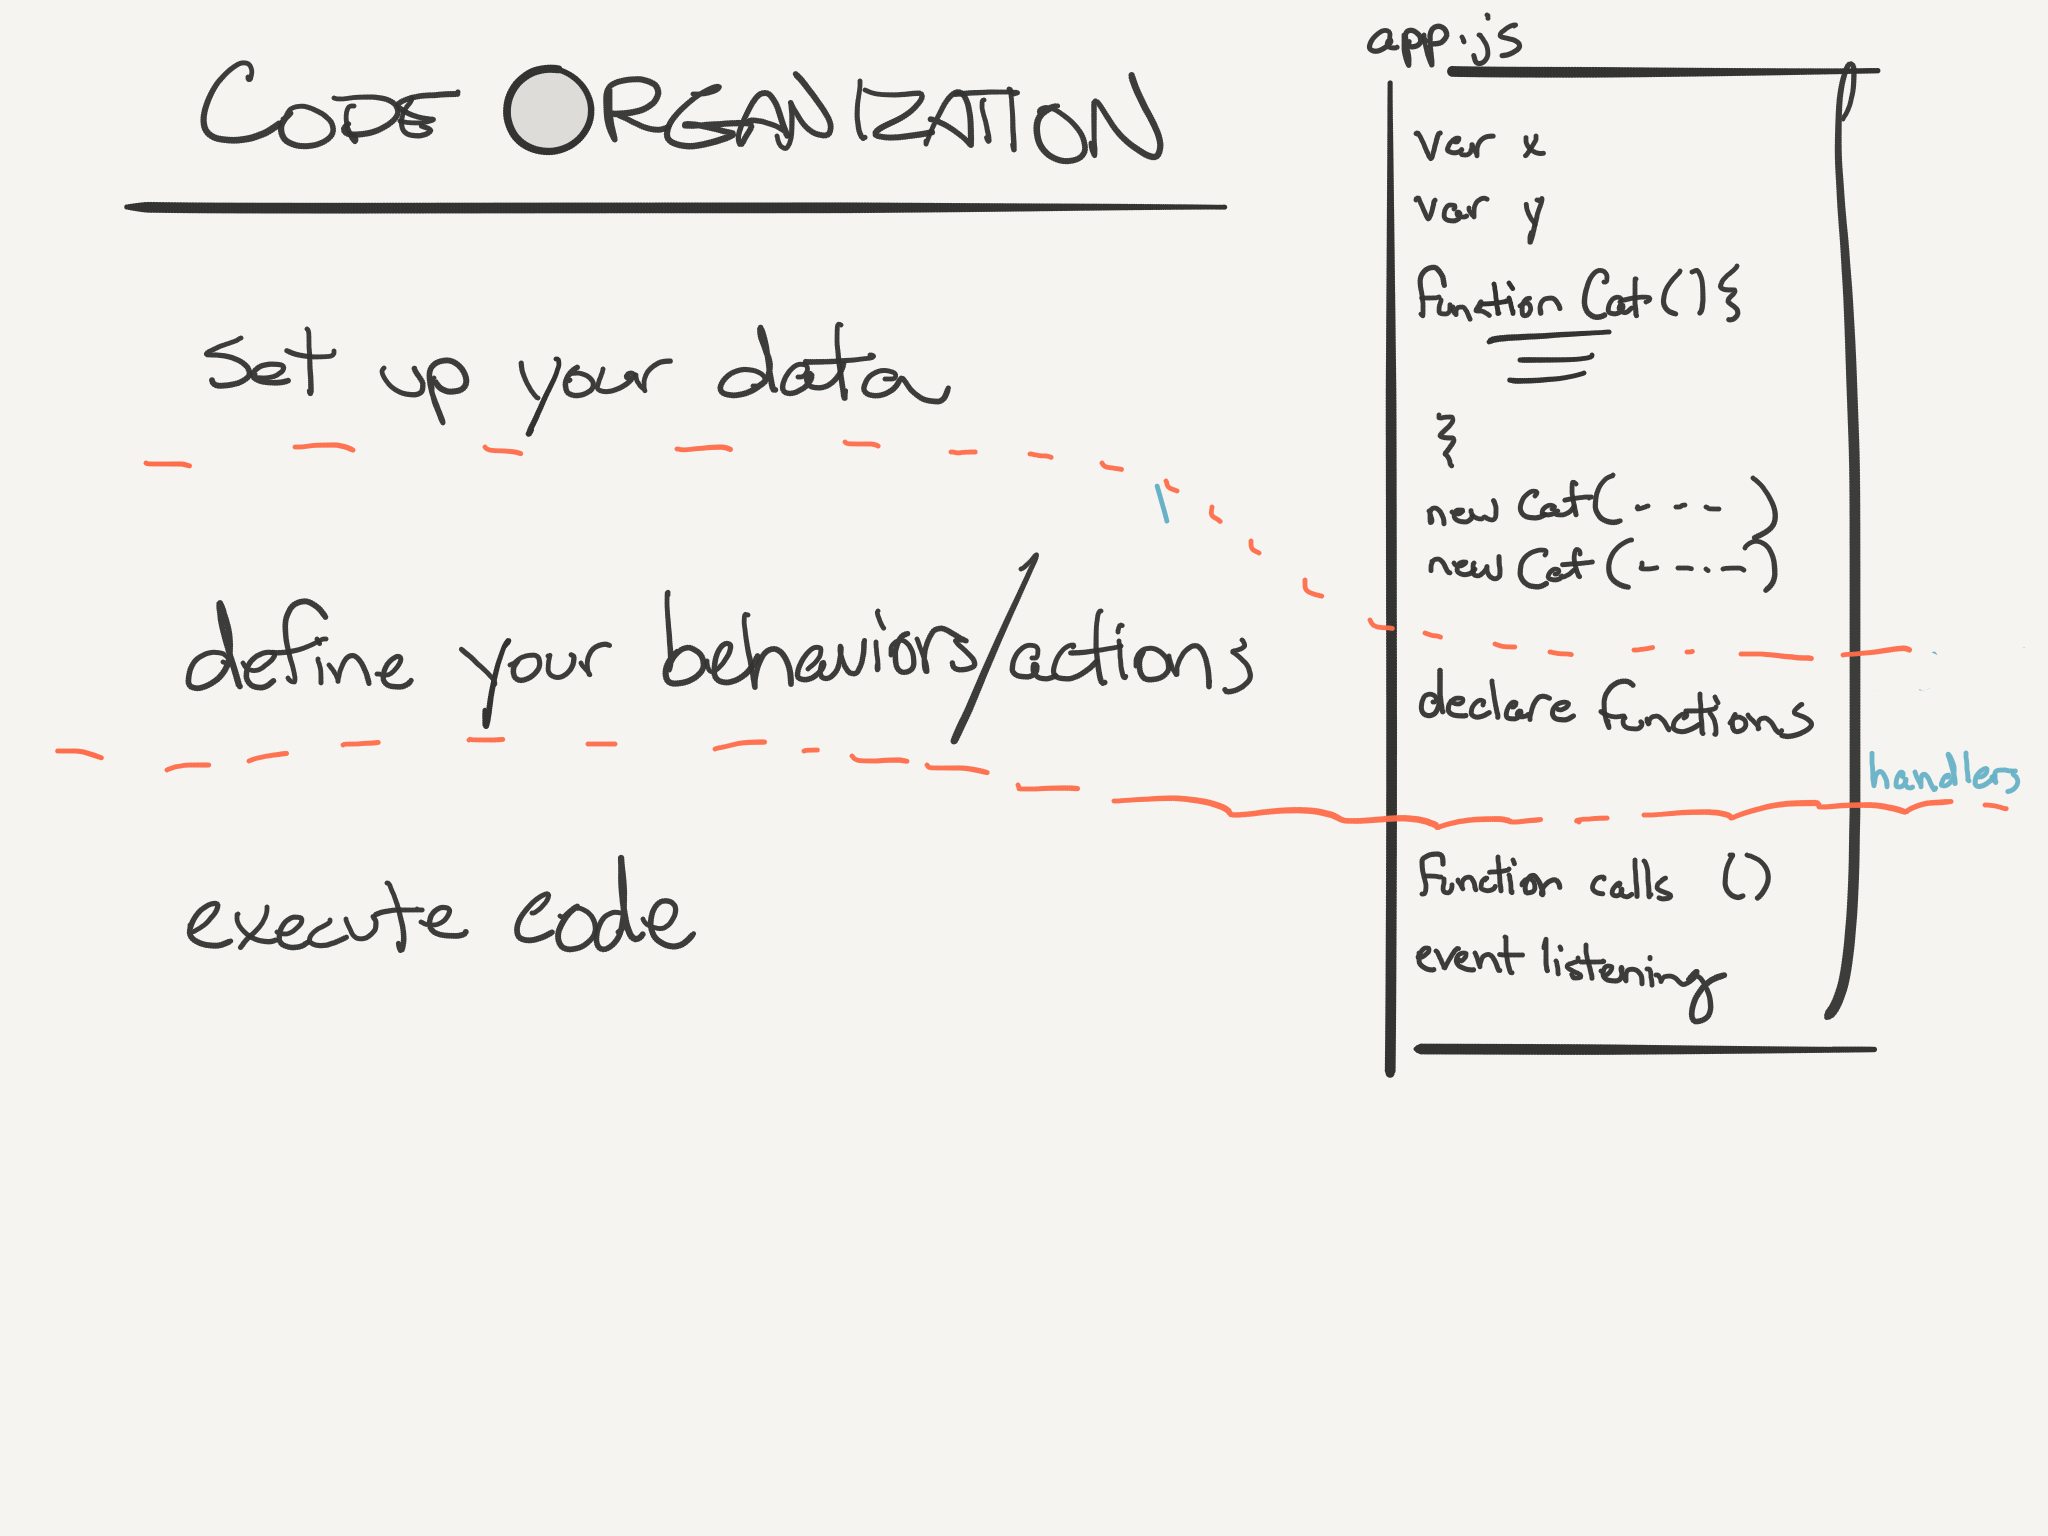 CODE ORGANIZATION
Set up your data
define your behaviors/actions
execute code
app.js
var x
var y
function Cat(){
}
new Cat(- - - -)
new Cat(- - - - -)
declare functions
handlers
function calls ()
event listening